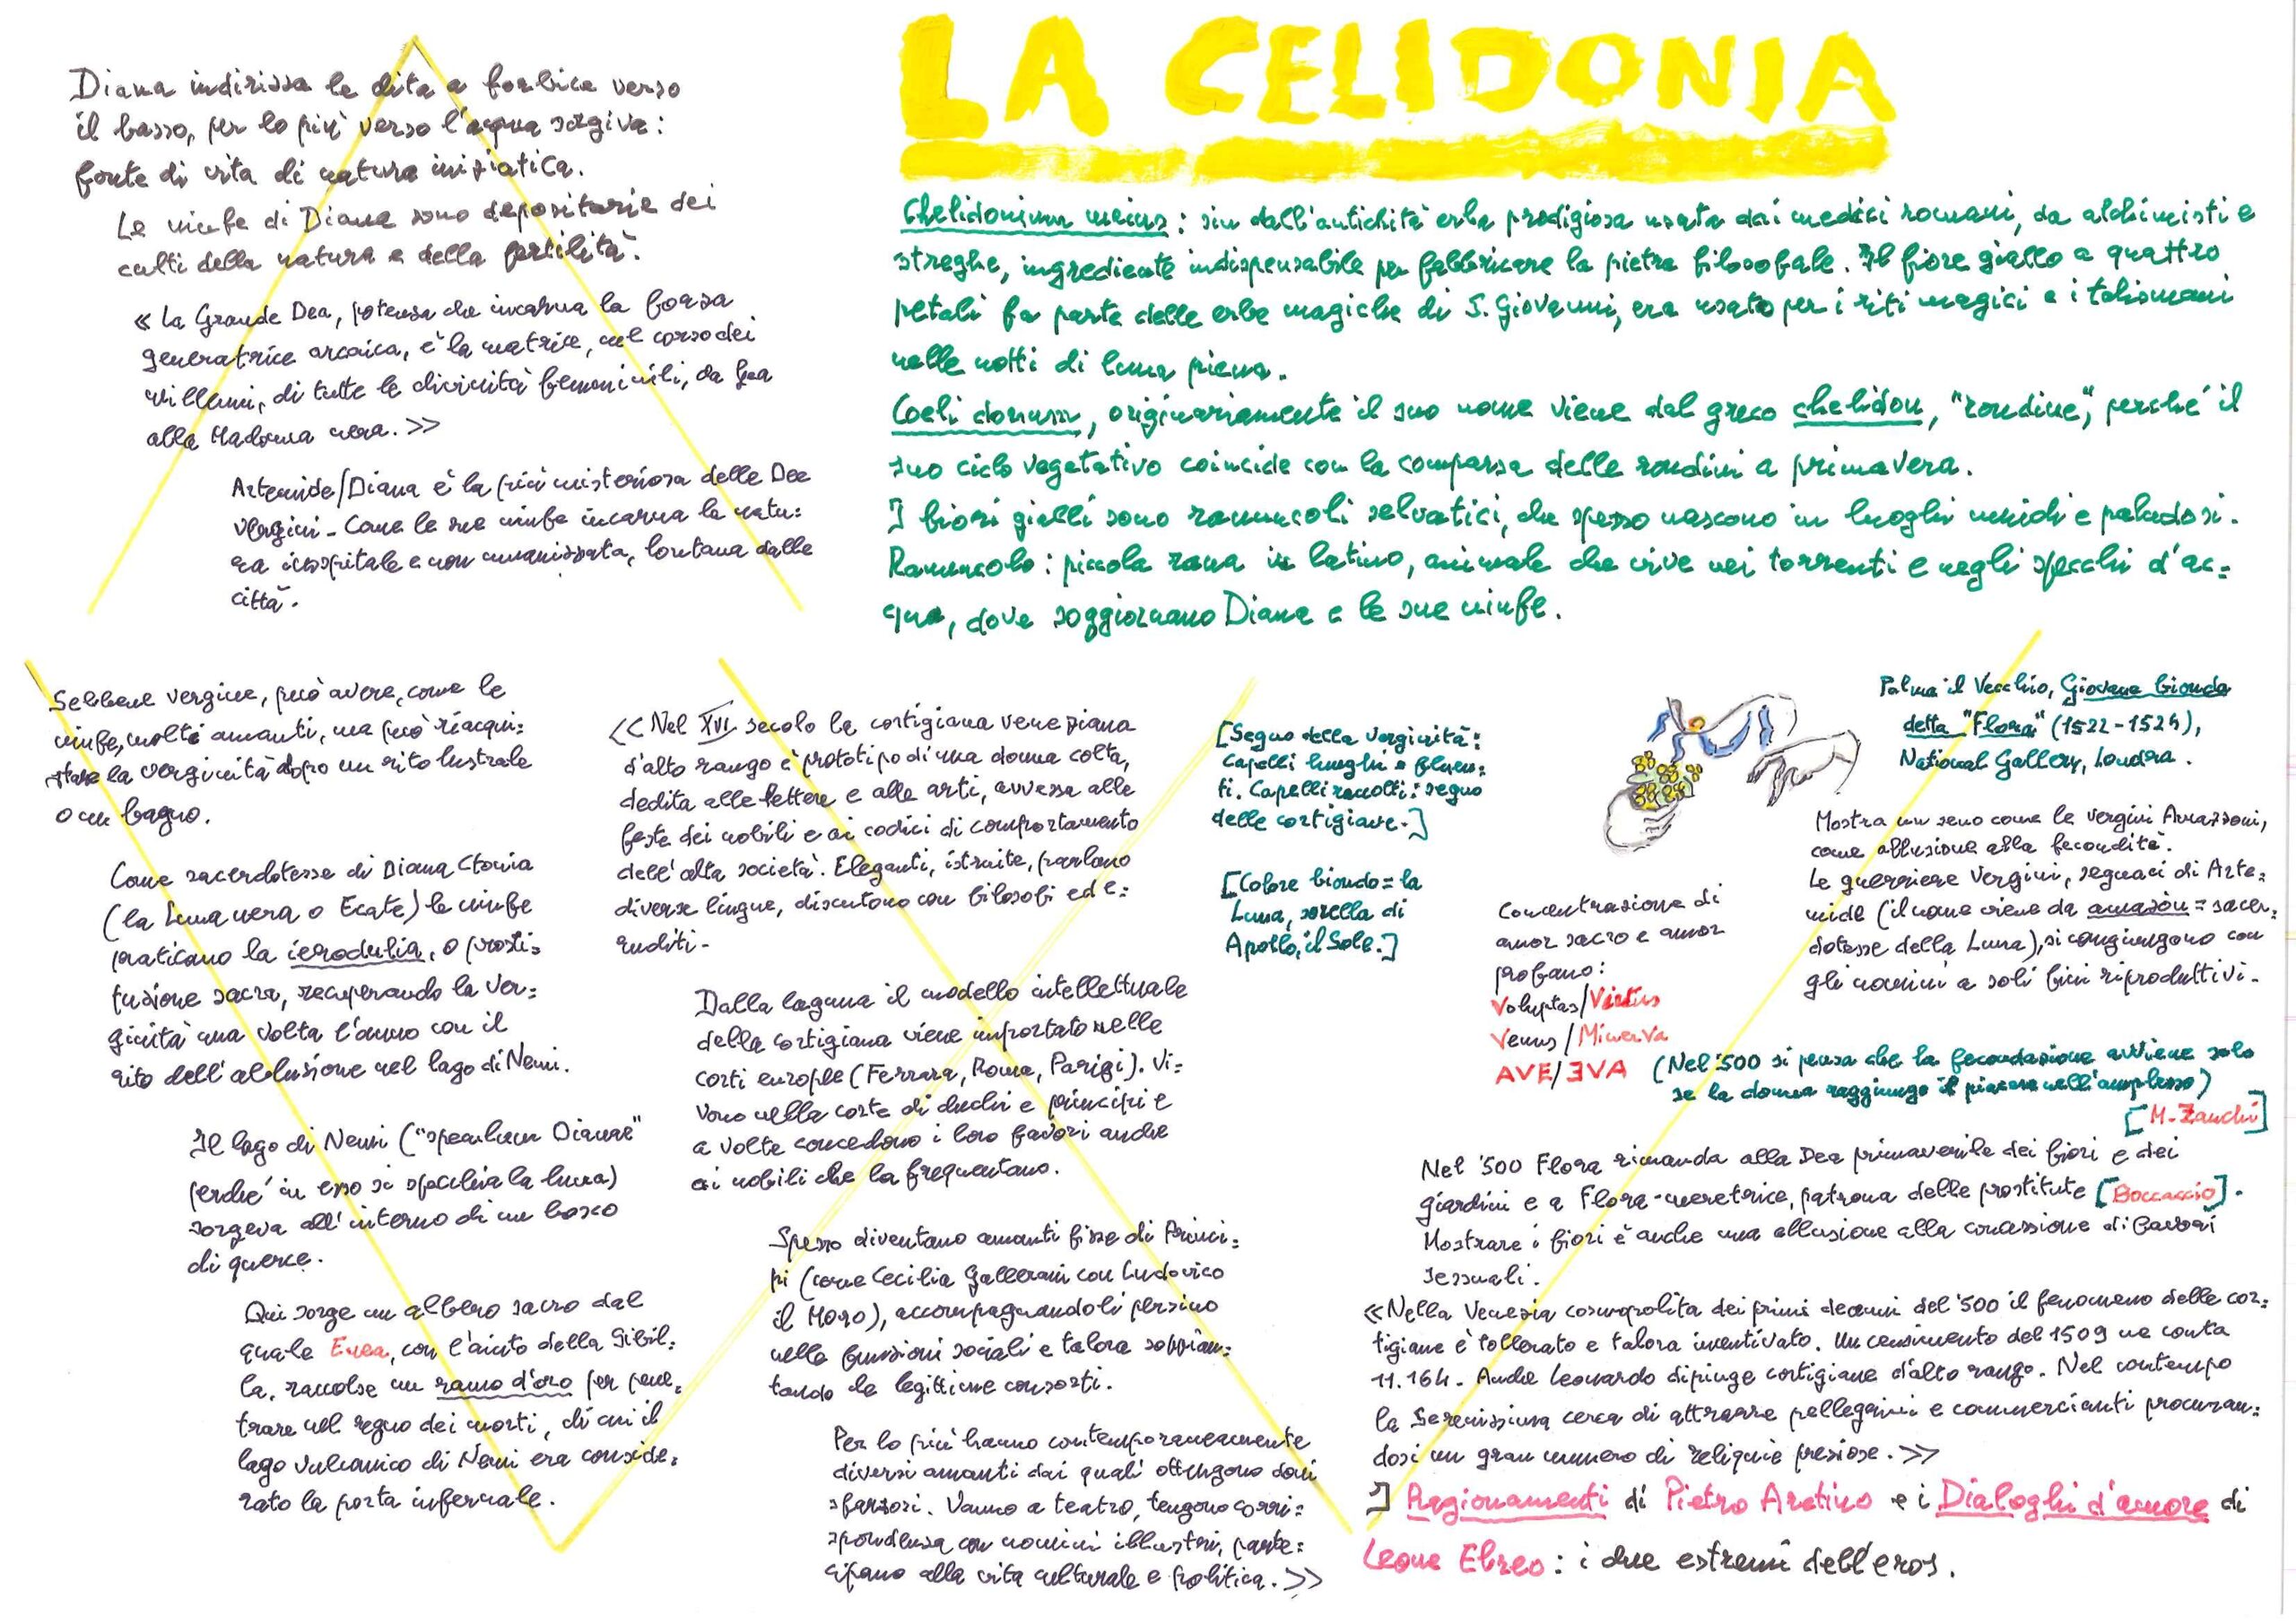 LA CELIDONIA
Diana indirizza le dita a forbice verso
il basso, per lo più verso l'acqua sorgiva:
fonte di vita di natura iniziatica.
Le ninfe di Diana sono depositarie dei
culti della natura e della fertilità.
« La Grande Dea, potenza che incarna la forza
generatrice arcaica, è la matrice, nel corso dei
millenni, di tutte le divinità femminili, da Gea
alla Madonna nera. >>
Artemide/Diana è la più misteriosa delle Dee
Vergini - Come le sue ninfe incarna la natu=
ra inospitale e non umanizzata, lontana dalle
città.
Chelidonium maius : sin dall'antichità erba prodigiosa usata dai medici romani, da alchimisti e
streghe, ingrediente indispensabile per fabbricare la pietra filosofale. Il fiore giallo a quattro
petali fa parte delle erbe magiche di S. Giovanni, era usato per i riti magici e i talismani
nelle notti di luna piena.
Coeli donum, originariamente il suo nome viene dal greco chelidon, "rondine", perché il
suo ciclo vegetativo coincide con la comparsa delle rondini a primavera.
I fiori gialli sono ranuncoli selvatici, che spesso nascono in luoghi umidi e paludosi.
Ranuncolo : piccola rana in latino, animale che vive nei torrenti e negli specchi d'ac=
qua, dove soggiornano Diana e le sue ninfe.
Sebbene vergine, può avere, come le
ninfe, molti amanti, ma può riacqui=
stare la verginità dopo un rito lustrale
o un bagno.
Come sacerdotesse di Diana Ctonia
(la Luna nera o Ecate) le ninfe
praticano la ierodulia, o prosti=
tuzione sacra, recuperando la ver=
ginità una volta l'anno con il
rito dell'abluzione nel lago di Nemi.
Il lago di Nemi ("speculum Dianae"
perché in esso si specchia la luna)
sorgeva all'interno di un bosco
di querce.
Qui sorge un albero sacro dal
quale Enea, con l'aiuto della Sibil=
la, raccolse un ramo d'oro per pene=
trare nel regno dei morti, di cui il
lago vulcanico di Nemi era conside=
rato la porta infernale.
<< Nel XVI secolo la cortigiana veneziana
d'alto rango è prototipo di una donna colta,
dedita alle lettere e alle arti, avvezza alle
feste dei nobili e ai codici di comportamento
dell'alta società. Eleganti, istruite, parlano
diverse lingue, discutono con filosofi ed e=
ruditi -
Dalla laguna il modello intellettuale
della cortigiana viene importato nelle
corti europee (Ferrara, Roma, Parigi). Vi=
vono nella corte di duchi e principi e
a volte concedono i loro favori anche
ai nobili che la frequentano.
Spesso diventano amanti fisse di Princi=
pi (come Cecilia Gallerani con Ludovico
il Moro), accompagnandoli persino
nelle funzioni sociali e talora soppian=
tando le legittime consorti.
Per lo più hanno contemporaneamente
diversi amanti dai quali ottengono doni
sfarzosi. Vanno a teatro, tengono corri=
spondenza con uomini illustri, parte=
cipano alla vita culturale e politica. >>
[Segno della verginità:
Capelli lunghi e fluen=
ti. Capelli raccolti: segno
delle cortigiane.]
[Colore biondo = la
Luna, sorella di
Apollo, il Sole.]
Palma il Vecchio, Giovane bionda
detta "Flora" (1522-1524),
National Gallery, Londra.
Mostra un seno come le vergini Amazzoni,
come allusione alla fecondità.
Le guerriere Vergini, seguaci di Arte=
mide (il nome viene da amazòn = sacer=
dotesse della Luna), si congiungono con
gli uomini a soli fini riproduttivi.
Concentrazione di
amor sacro e amor
profano:
Voluptas/Virtus
Venus/Minerva
AVE/EVA
(Nel '500 si pensa che la fecondazione avviene solo
se la donna raggiunge il piacere nell'amplesso)
[M. Zanchi]
Nel '500 Flora rimanda alla Dea primaverile dei fiori e dei
giardini e a Flora-meretrice, patrona delle prostitute [Boccaccio].
Mostrare i fiori è anche una allusione alla concessione di favori
sessuali.
«Nella Venezia cosmopolita dei primi decenni del '500 il fenomeno delle cor=
tigiane è tollerato e talora incentivato. Un censimento del 1509 ne conta
11.164. Anche Leonardo dipinge cortigiane d'alto rango. Nel contempo
la Serenissima cerca di attrarre pellegrini e commercianti procuran=
dosi un gran numero di reliquie preziose. >>
I Ragionamenti di Pietro Aretino e i Dialoghi d'amore di
Leone Ebreo : i due estremi dell'eros.